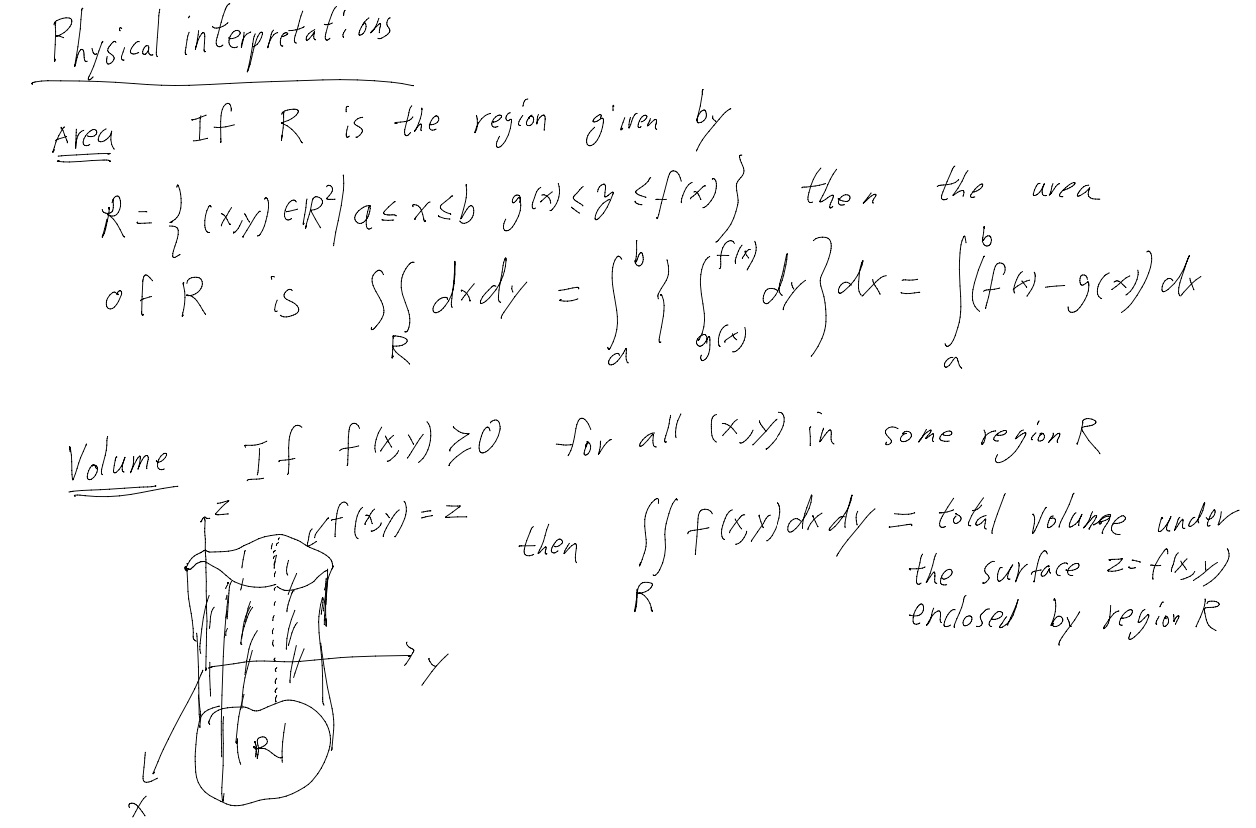 Physical interpretations
Area If R is the region given by
R = { (x,y) ∈ ℝ² | a ≤ x ≤ b g(x) ≤ y ≤ f(x) } then the area
of R is ∬_R dxdy = ∫_a^b { ∫_{g(x)}^{f(x)} dy } dx = ∫_a^b (f(x) - g(x)) dx
Volume If f(x,y) ≥ 0 for all (x,y) in some region R
z
f(x,y) = z
then ∬_R f(x,y) dx dy = total volume under
the surface z = f(x,y)
enclosed by region R
y
R
x